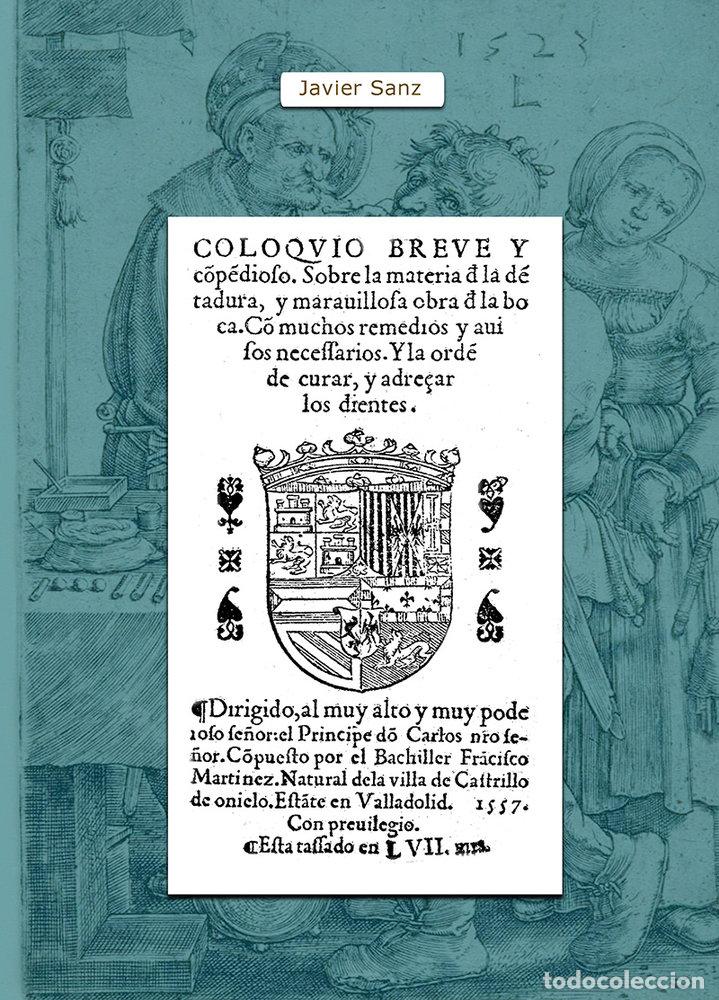 1523
L
Javier Sanz
COLOQVIO BREVE Y
cõpẽdioſo. Sobre la materia đ la dẽ
tadura, y marauilloſa obra đ la bo
ca. Cõ muchos remedios y aui
ſos neceſſarios. Y la ordẽ
de curar, y adreçar
los dientes.
¶Dirigido, al muy alto y muy pode
roſo ſeñor: el Principe dõ Carlos nr̃o ſe-
ñor. Cõpueſto por el Bachiller Frãciſco
Martinez. Natural dela villa de Caſtrillo
de onielo. Eſtãte en Valladolid. 1557.
Con preuilegio.
¶Eſta taſſado en LVII.
todocoleccion